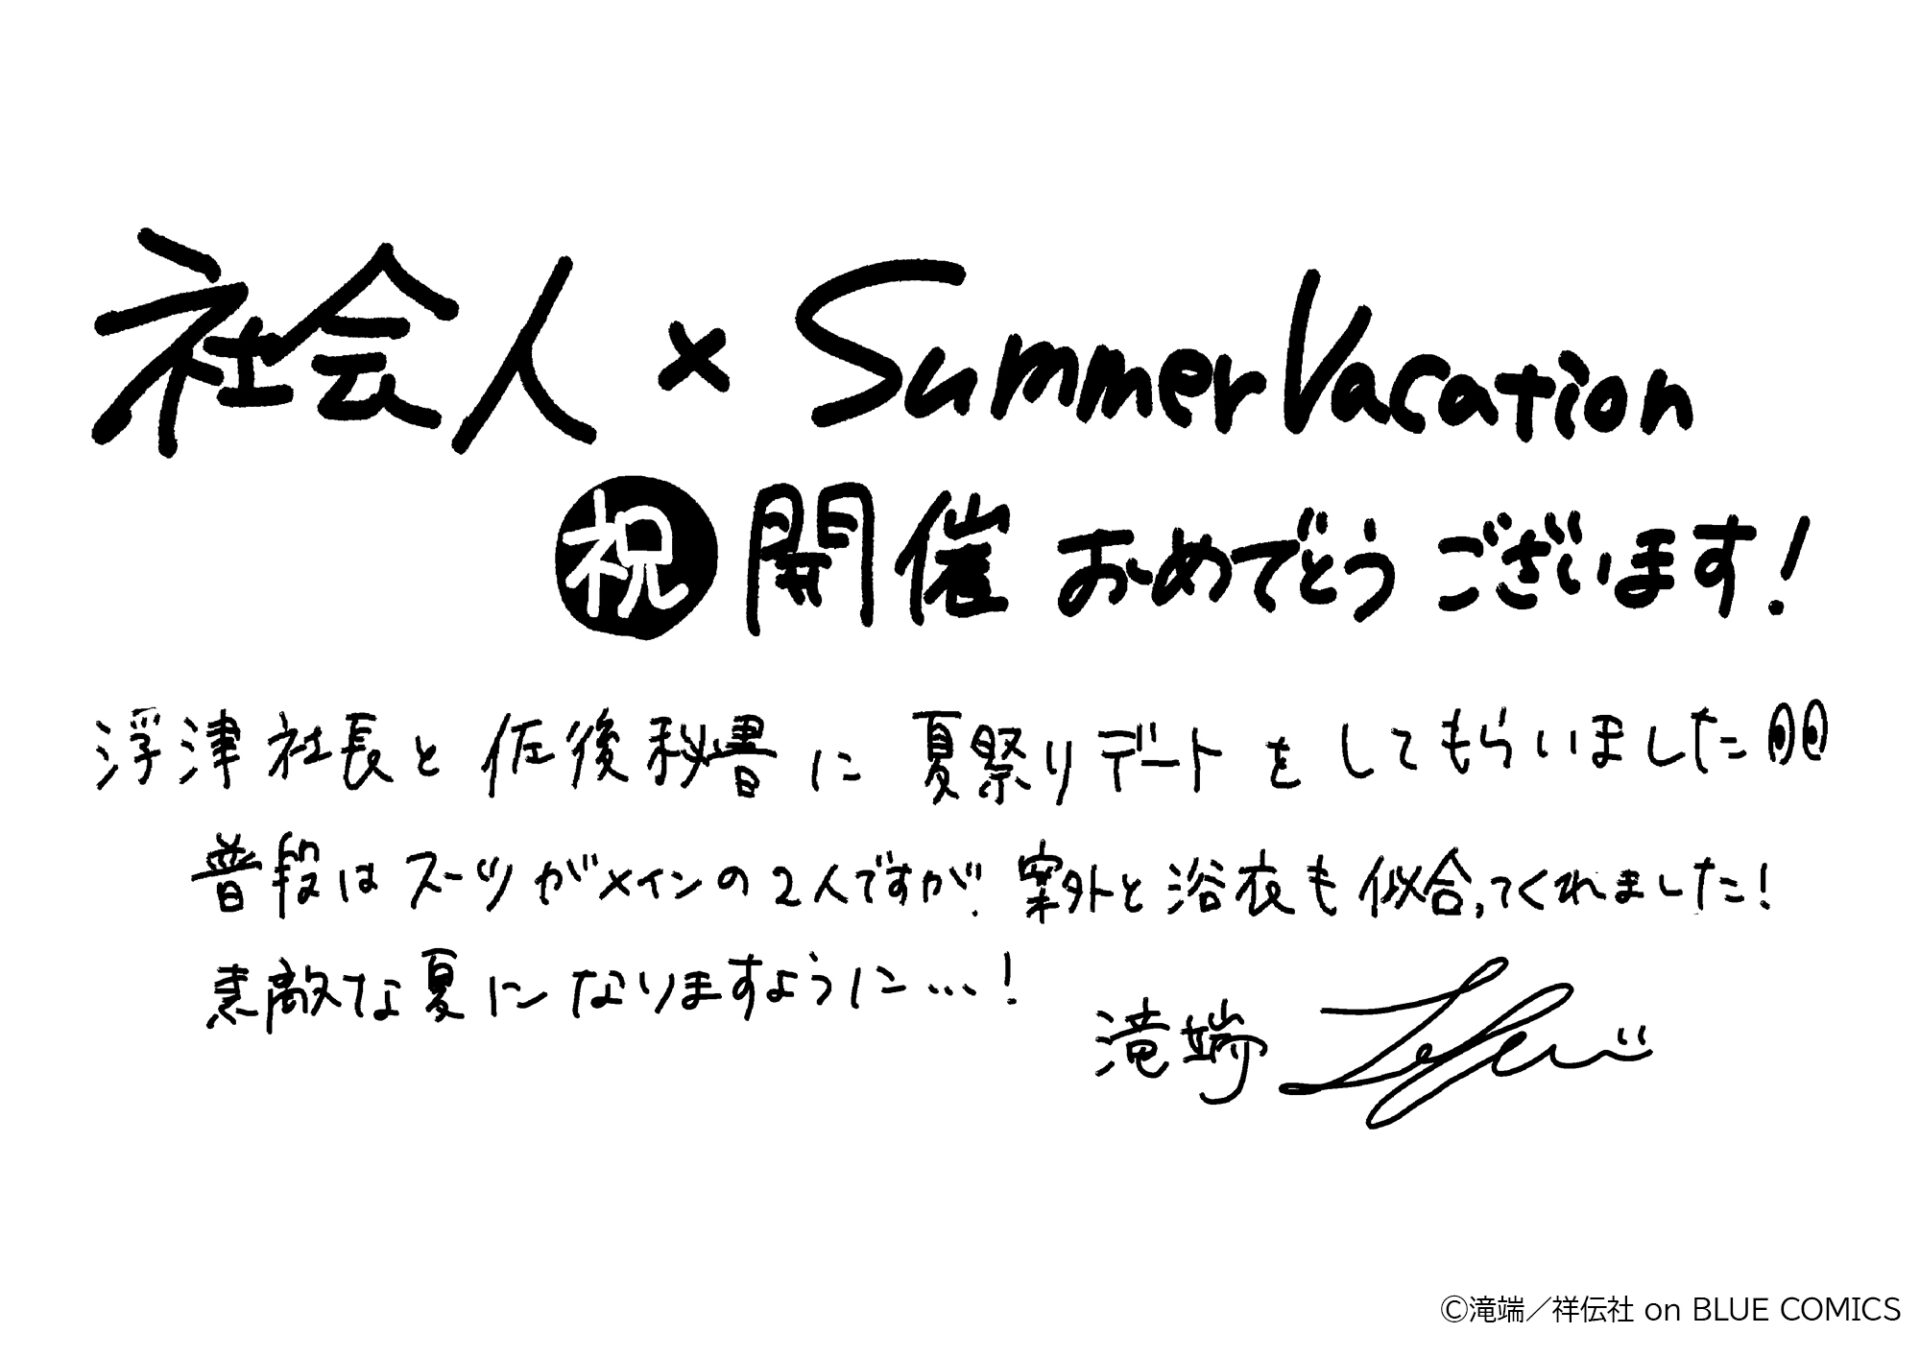 社会人×Summer Vacation
祝 開催 おめでとうございます!
浮津社長と佐後秘書に夏祭りデートをしてもらいました
普段はスーツがメインの2人ですが、案外と浴衣も似合ってくれました!
素敵な夏になりますように…!
滝端
©滝端／祥伝社 on BLUE COMICS